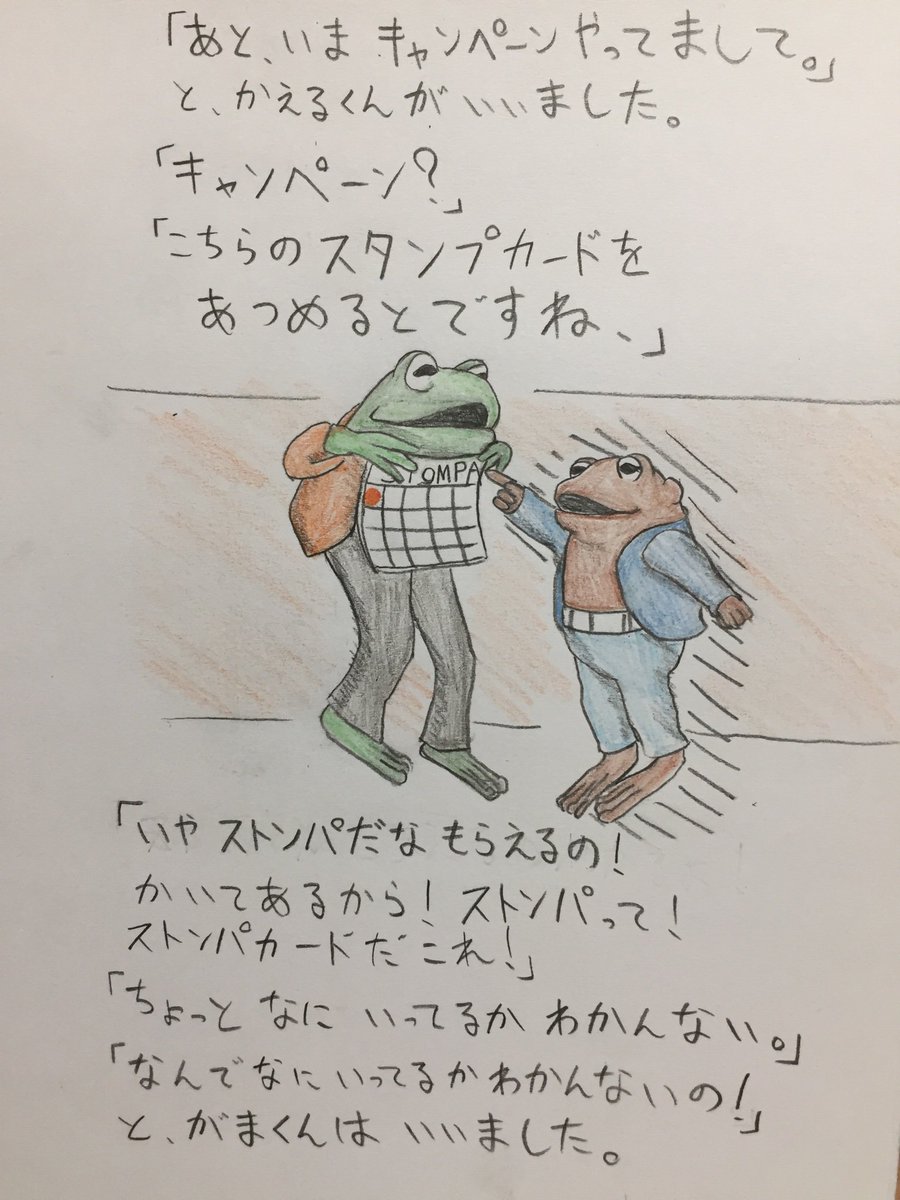 「あと、いま キャンペーンやってまして。」
と、かえるくんが いいました。
「キャンペーン?」
「こちらのスタンプカードを
あつめるとですね、」
STOMPA
「いや ストンパだな もらえるの!
かいてあるから! ストンパって!
ストンパカードだ これ!」
「ちょっと なに いってるか わかんない。」
「なんでなに いってるか わかんないの!」
と、がまくんは いいました。